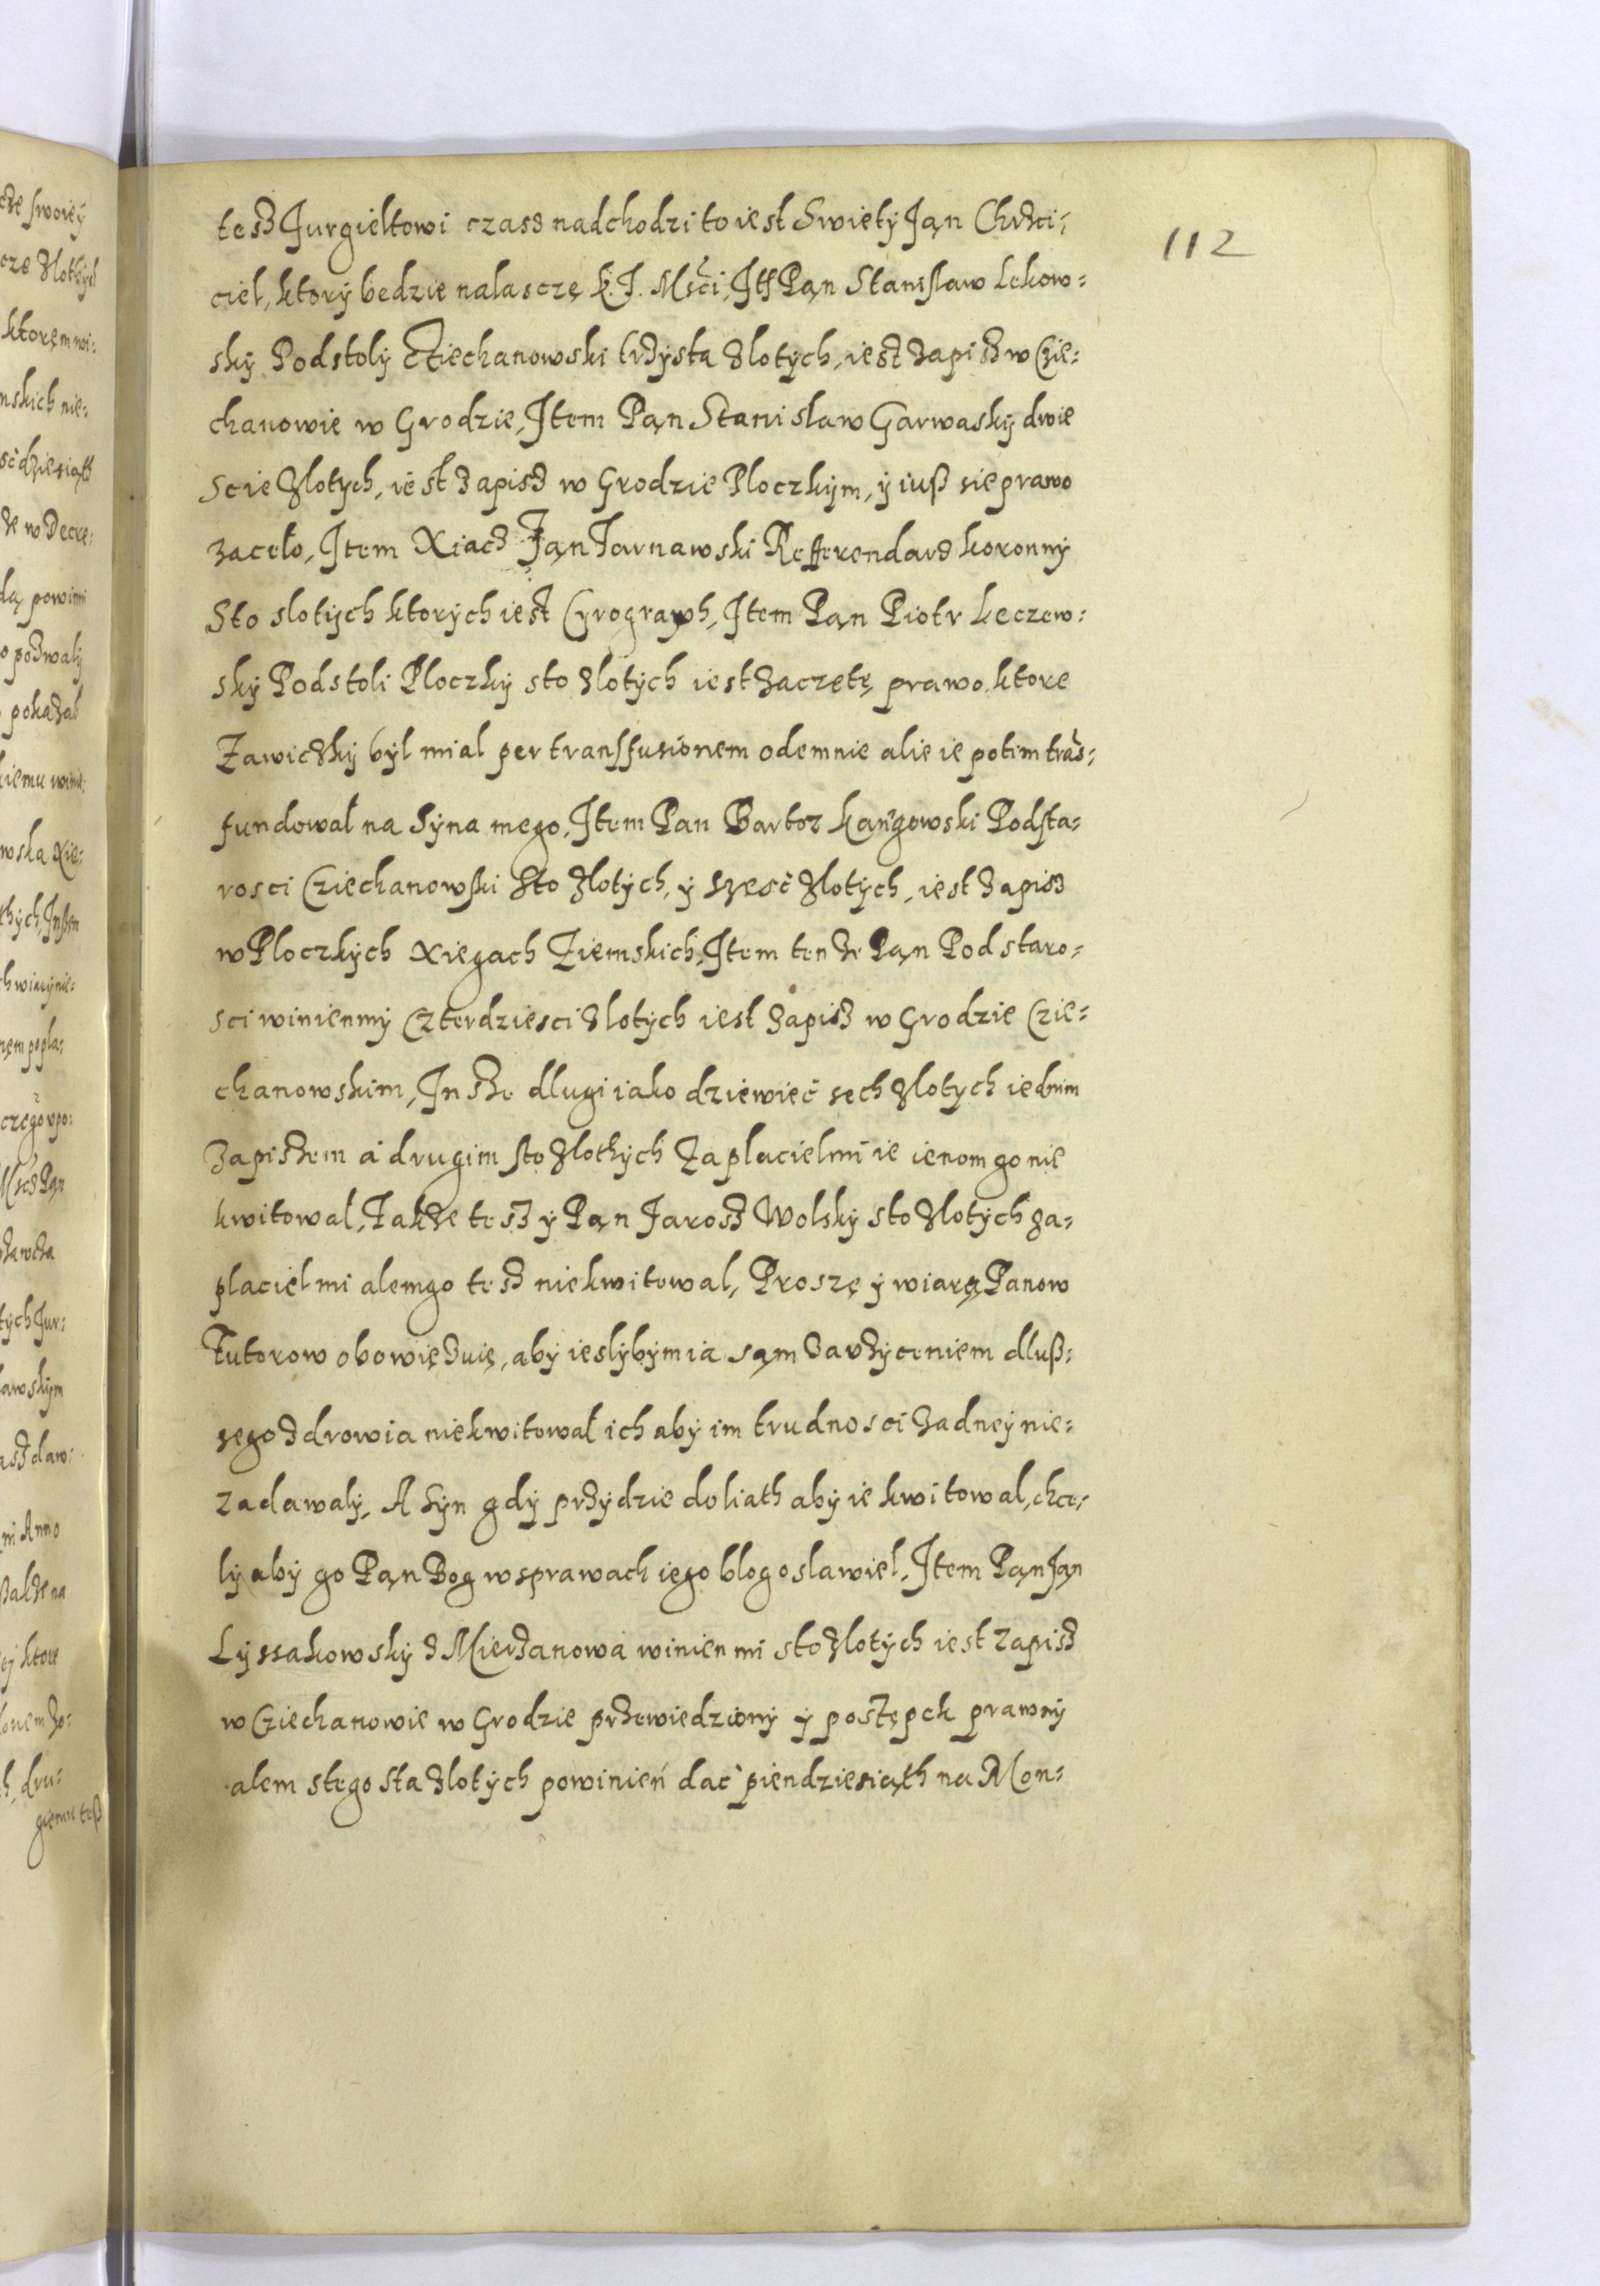 112
tesz Jurgieltowi czasz nadchodzi to iest Swiety Jąn Chrzci-
ciel, ktory bedzie nalasczę K. J. Msći, Itt Pąn Stanisław Lekow-
sky Podstoly Cziechanowski trzysta zlotych, iest zapisz w Czie-
chanowie w Grodzie, Item Pąn Stanislaw Garwasky dwie
scie zlotych, iest zapisz w Grodzie Ploczkym, y iuß sie prawo
zaceło, Item Xiacz Jąn Tarnawski Refferendarz koronny
Sto slotych ktorych iest Cyrograph, Item Pąn Piotr Leczew-
sky Podstoli Ploczky sto zlotych iest zaczetę prawo. ktore
Zawiczky byl mial per transfusionem odemnie alie ie potim trās-
fundowal na Syna mego, Item Pan Bartoz Kangowski Podsta-
rosci Cziechanowski Sto zlotych, y szesć zlotych, iest zapisz
w Ploczkych xiegach Ziemskich, Item tenze Pąn Podstaro-
sci winienmy Czterdziesci zlotych iest zapisz w Grodzie Czie-
chanowskim, Insze dlugi iako dziewieć sech zlotych iednim
zapiszem a drugim sto zlothych zaplacielmi ie ienom go nie
kwitowal, Takze tesz y Pąn Jarosz Wolsky sto zlotych za-
placiel mi alemgo tesz niekwitowal, Proszę y wiarą Panow
Tutorow obowięzuię, aby ieslybym ia sąm zarzyceniem dluß-
sego zdrowia niekwitowal ich aby im trudnosci zadney nie-
zadawaly, A Syn gdy przydzie doliath aby ie kwitowal, chce-
ly aby go Pąn Bog w sprawach iego blogoslawiel, Item Pąn Jąn
Lyssakowsky z Mierzanowa winien mi sto zlotych iest zapisz
w Cziechanowie w Grodzie przewiedziony y postępek prawny
alem stego sta zlotych powinień dać piendziesiąth na Mon-